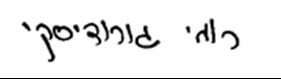 רותי גורודיסקי